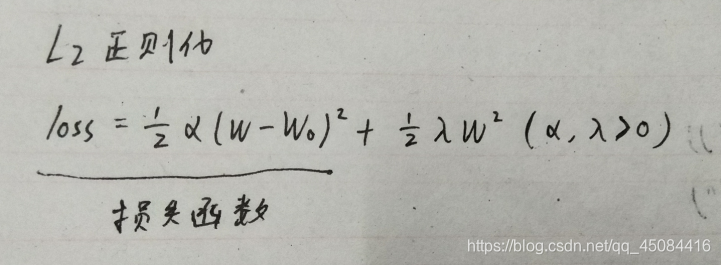 L₂ 正则化
loss = ½ α (W - W₀)² + ½ λ W² (α, λ>0)
损失函数
https://blog.csdn.net/qq_45084416